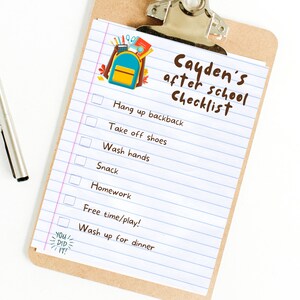 Cayden's
after school
Checklist
Hang up backback
Take off shoes
Wash hands
Snack
Homework
Free time/play!
Wash up for dinner
YOU
DID
IT!